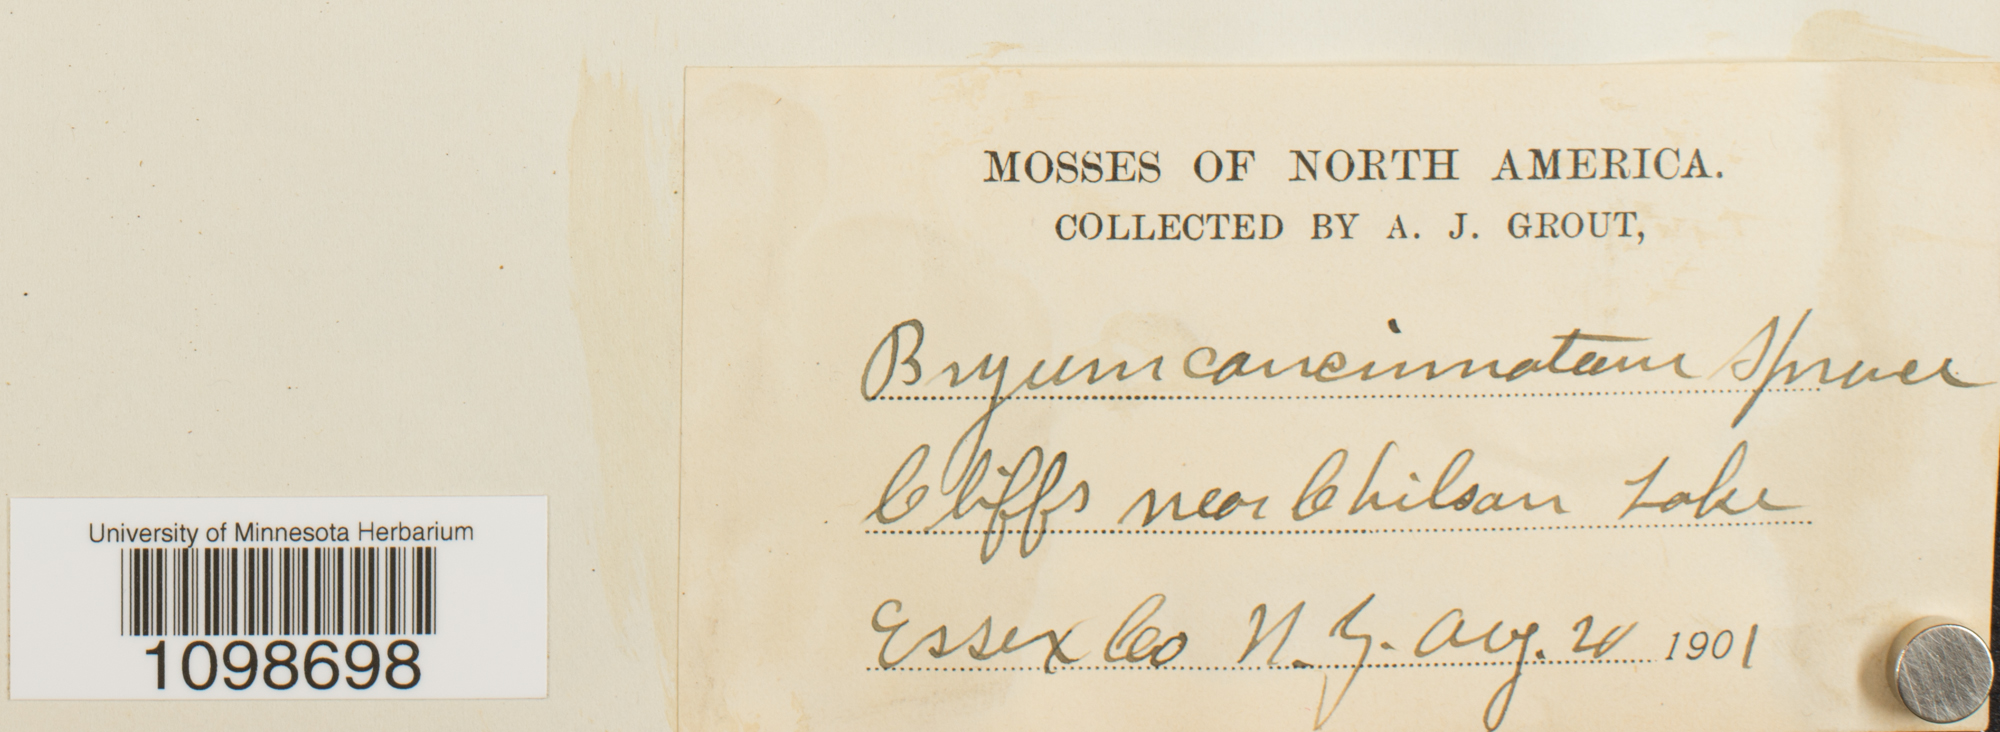 MOSSES OF NORTH AMERICA.
COLLECTED BY A. J. GROUT,
Bryum concinnatum Spruce
Cliffs near Chilson Lake
Essex Co N. Y. Aug. 20 1901
University of Minnesota Herbarium
1098698